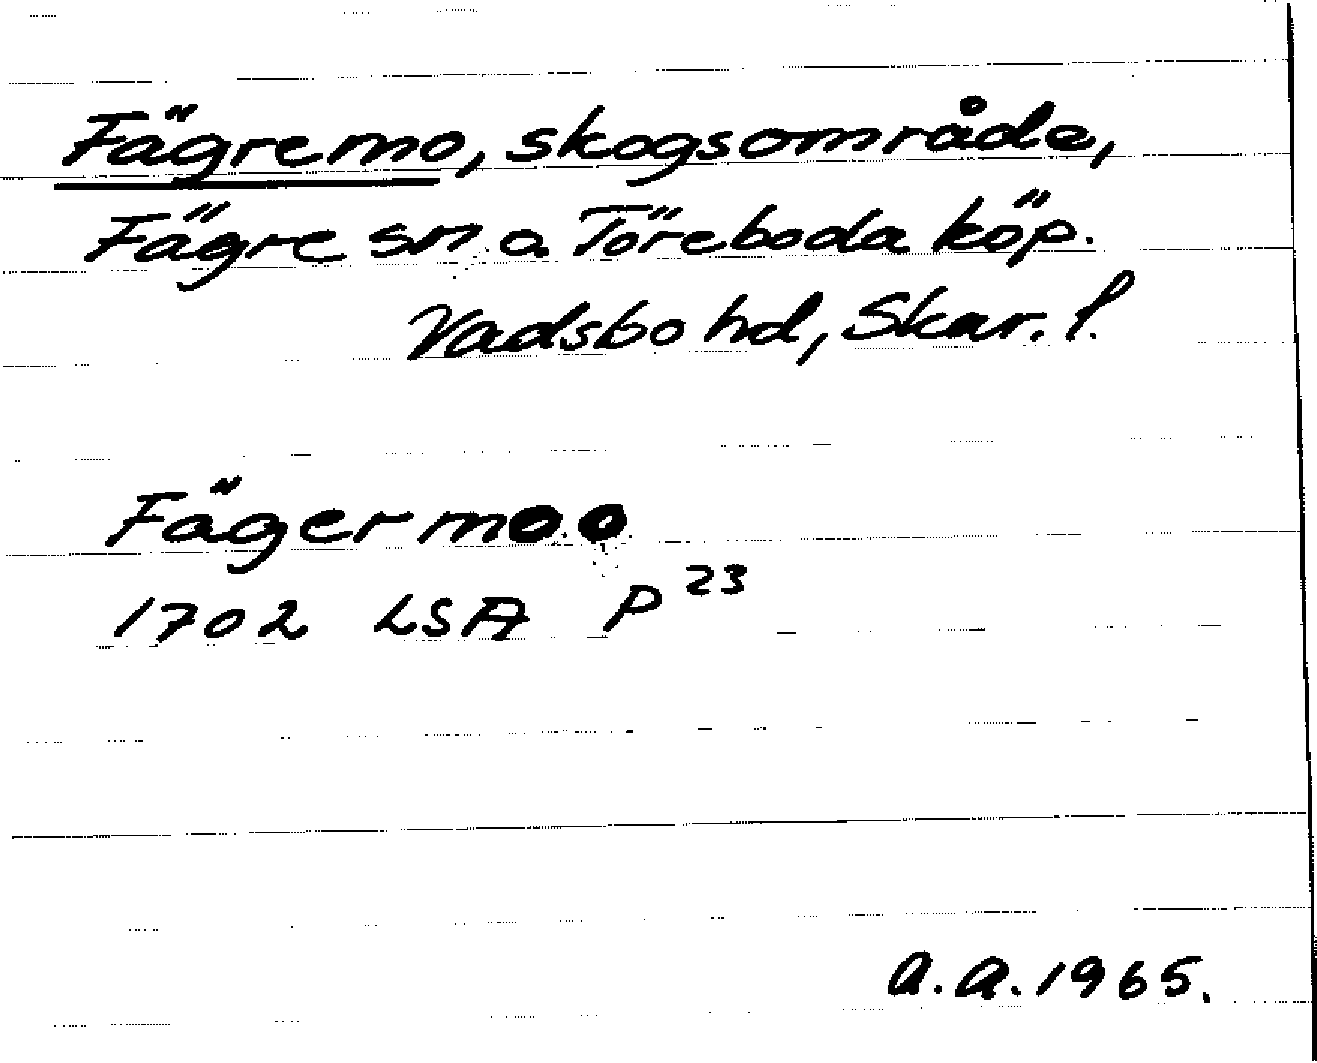 Fägremo, skogsområde,
Fägre sn o. Töreboda köp.
Vadsbo hd, Skar. l.
Fägermoo
1702 LSA P 23
a.a. 1965.